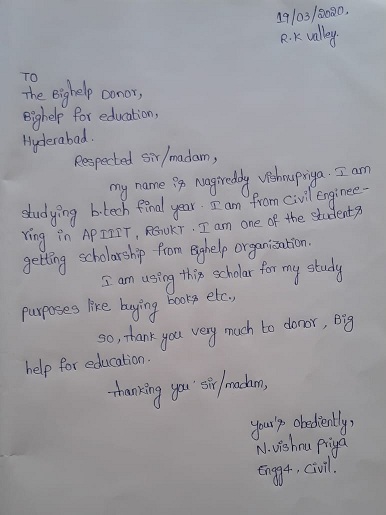 19/03/2020.
R.K Valley.
TO
The Bighelp Donor,
Bighelp for education,
Hyderabad.
Respected sir/madam,
my name is Nagireddy Vishnupriya. I am
studying b.tech final year. I am from Civil Enginee-
ring in AP IIIT, RGUKT. I am one of the students
getting scholarship from Bighelp organization.
I am using this scholar for my study
purposes like buying books etc.,
so, thank you very much to donor, Big
help for education.
Thanking you sir/madam,
your's obediently,
N. Vishnu Priya
Engg4, Civil.